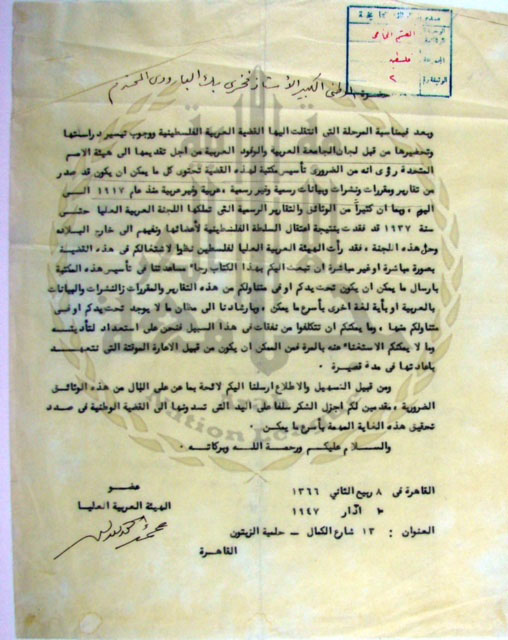 القسم الخاص
فلسطين
٢
الوطني الكبير الأستاذ فخري بك البارودي المحترم
وبعد فبمناسبة المرحلة التي انتقلت اليها القضية العربية الفلسطينية ووجوب تيسير دراستها
وتحضيرها من قبل لجان الجامعة العربية والوفود العربية من أجل تقديمها الى هيئة الامم
المتحدة رؤى انه من الضرورى تأسيس مكتبة لهذه القضية تحتوى كل ما يمكن ان يكون قد صدر
من تقارير ومقررات ونشرات وبيانات رسمية وغير رسمية ، عربية وغير عربية منذ عام ١٩١٧ الــى
اليوم ، وبما ان كثيراً من الوثائق والتقارير الرسمية التى تملكها اللجنة العربية العليا حتــى
سنة ١٩٣٧ قد فقدت بنتيجة اعتقال السلطة الفلسطينية لأعضائها ونفيهم الى خارج البــلاد
وحل هذه اللجنة ، فقد رأت الهيئة العربية العليا لفلسطين نظرا لاشتغالكم فى هذه القضيــة
بصورة مباشرة او غير مباشرة ان تبعث اليكم بهذا الكتاب رجاء مساعدتنا فى تأسيس هذه المكتبة
بارسال ما يمكن ان يكون تحت يدكم او فى متناولكم من هذه التقارير والمقررات والنشرات والبيانات
بالعربية او بأية لغة أخرى بأسرع ما يمكن ، وبارشادنا الى مظان ما لا يوجد تحت يدكم او فــى
متناولكم منها ، وما يمكنكم ان تتكلفوا من نفقات فى هذا السبيل فنحن على استعداد لتأديتــه
وما لا يمكنكم الاستغناء عنه بالمرة فمن الممكن ان يكون من قبيل الاعارة الموقتة التى نتعهــد
باعادتها فى مدة قصيرة .
ومن قبيل التسهيل والاطلاع ارسلنا اليكم لائحة بما عن على البال من هذه الوثائــق
الضرورية ، مقدمين لكم اجزل الشكر سلفا على اليد التى تسدونها الى القضية الوطنية فى صدد
تحقيق هذه الغاية المهمة بأسرع ما يمكــن .
والســـلام عليكـم ورحمـة اللــه وبركاتــه .
القاهرة فى ٨ ربيع الثانى ١٣٦٦
اذار ١٩٤٧
العنوان : ١٣ شارع الكمال ــ حلمية الزيتون
القاهــرة
عضــو
الهيئة العربية العليــا
Arab
Nation League